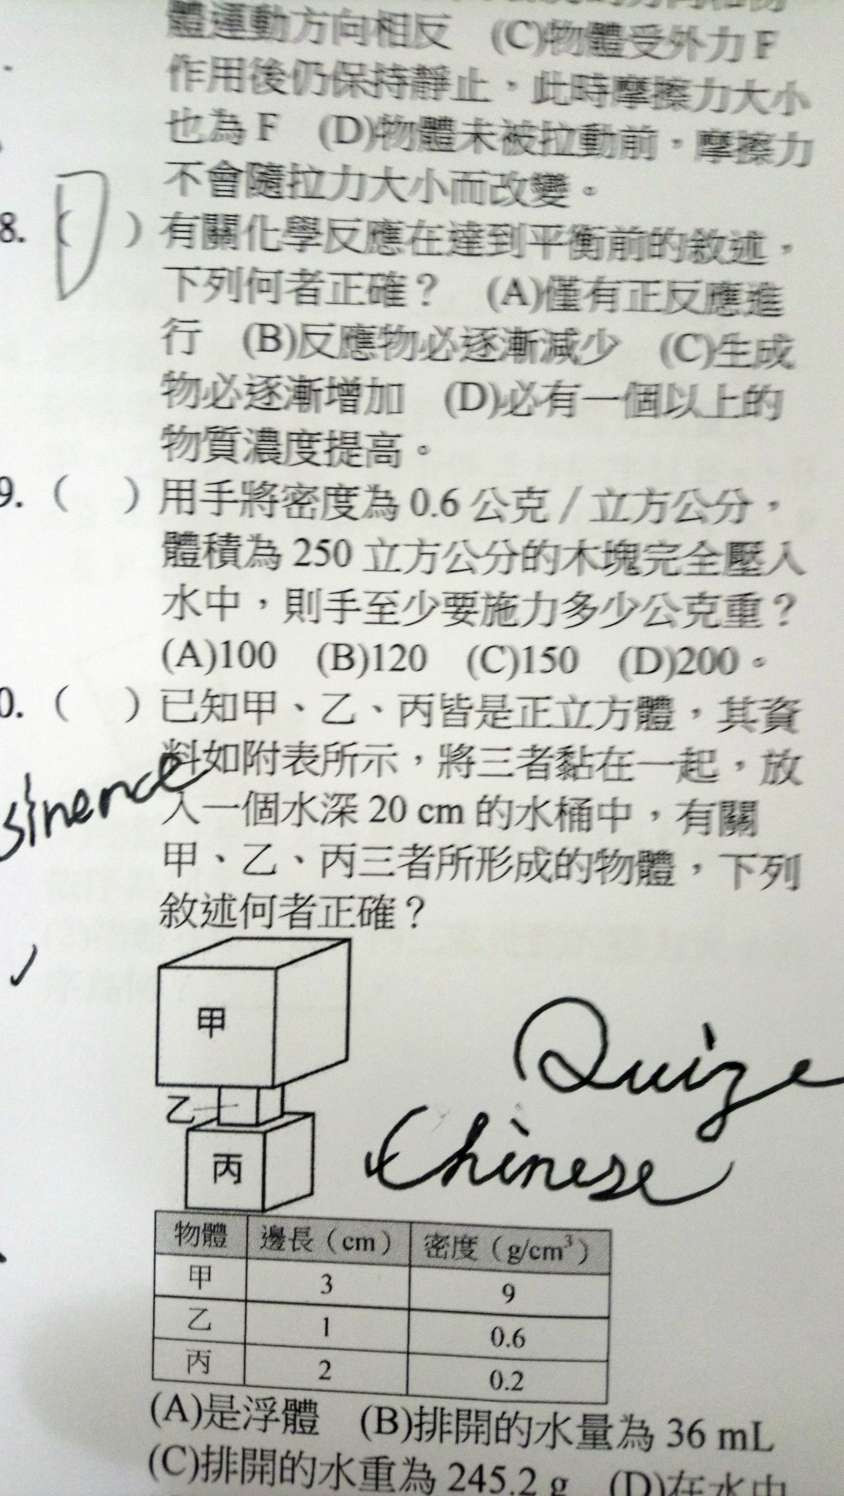 體運動方向相反　(C)物體受外力 F
作用後仍保持靜止，此時摩擦力大小
也為 F　(D)物體未被拉動前，摩擦力
不會隨拉力大小而改變。
8. (D) 有關化學反應在達到平衡前的敘述，
下列何者正確？　(A)僅有正反應進
行　(B)反應物必逐漸減少　(C)生成
物必逐漸增加　(D)必有一個以上的
物質濃度提高。
9. (　) 用手將密度為 0.6 公克／立方公分，
體積為 250 立方公分的木塊完全壓入
水中，則手至少要施力多少公克重？
(A)100　(B)120　(C)150　(D)200。
0. (　) 已知甲、乙、丙皆是正立方體，其資
料如附表所示，將三者黏在一起，放
入一個水深 20 cm 的水桶中，有關
甲、乙、丙三者所形成的物體，下列
敘述何者正確？
sinence
甲
乙
丙
Quize
Chinese
物體　邊長（cm）　密度（g/cm³）
甲　3　9
乙　1　0.6
丙　2　0.2
(A)是浮體　(B)排開的水量為 36 mL
(C)排開的水重為 245.2 g　(D)在水中